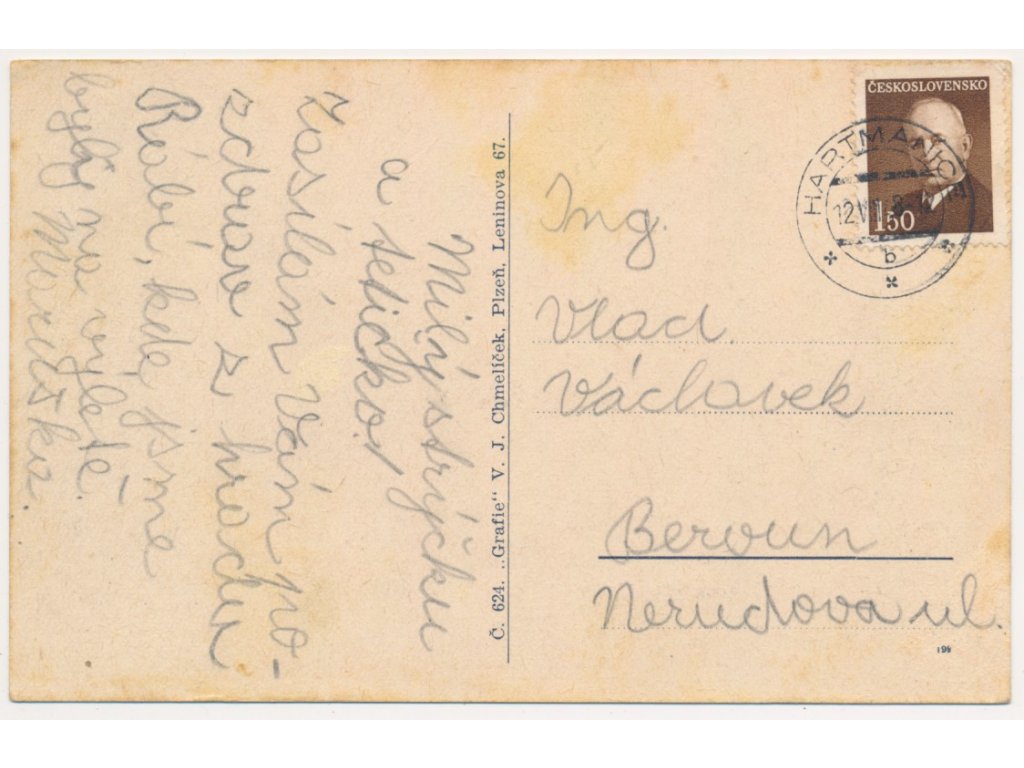 Milý strýčku
a tetičko!
Zasílám Vám po-
zdrav z hradu
Rábí, kde jsme
byli na výletě.
Maruška.
Č. 624. „Grafie“ V. J. Chmelíček, Plzeň, Leninova 67.
ČESKOSLOVENSKO
1.50
HARTMANICE
b
Ing.
Vlad.
Václavek
Beroun
Nerudova ul.